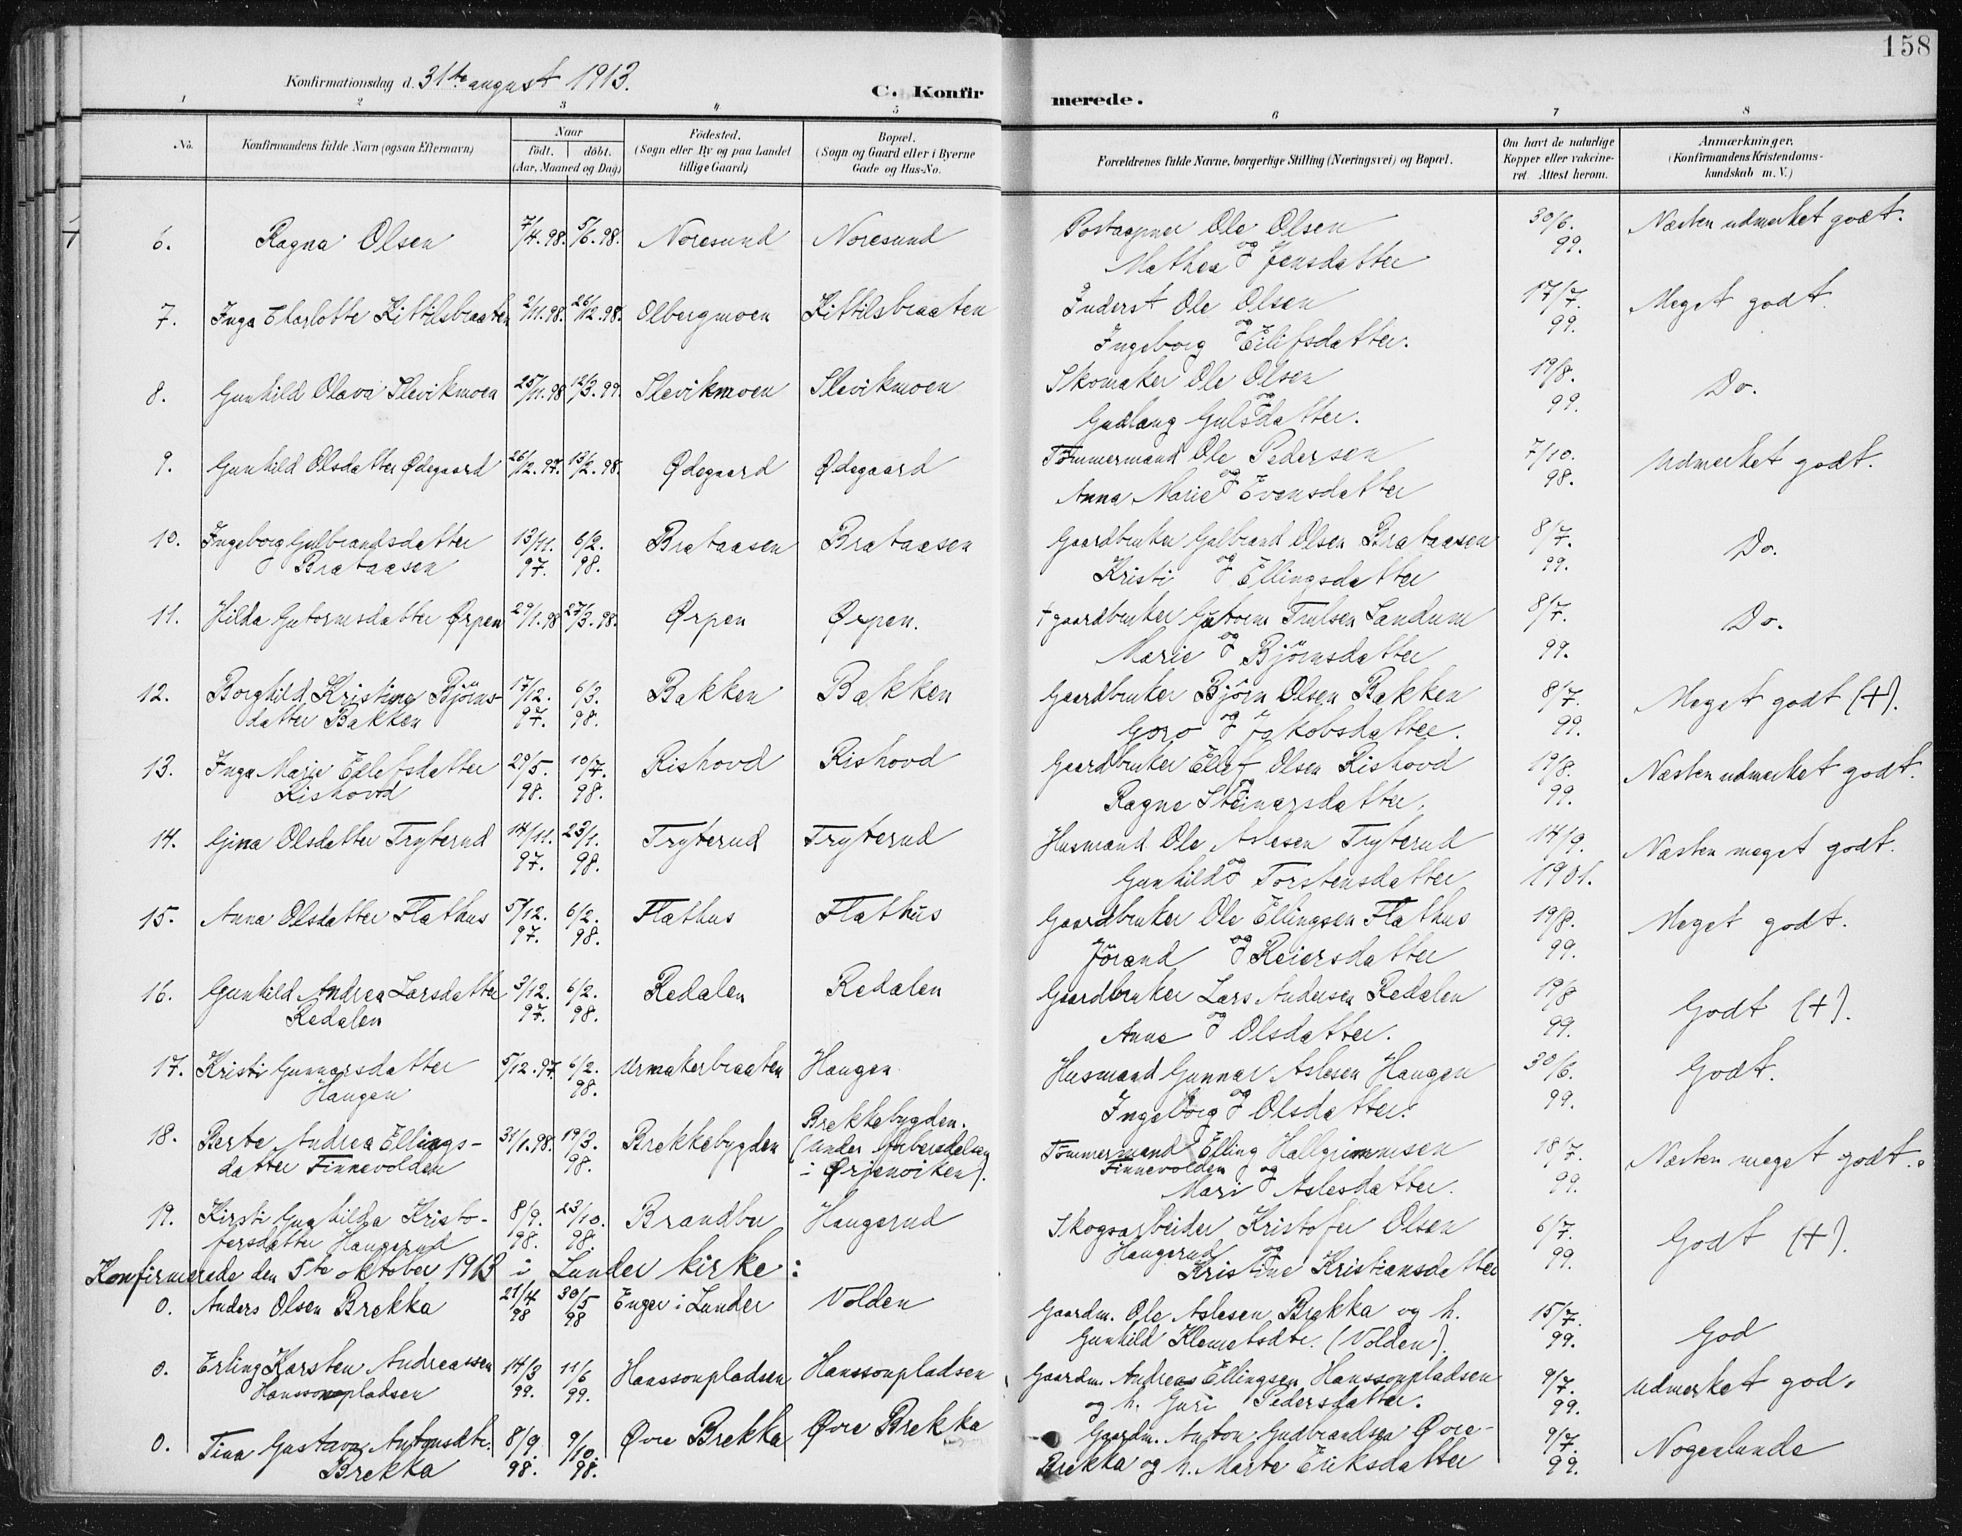 158
Konfirmationsdag d. 31te august 1913.
C. Konfirmerede.
1 2 3 4 5 6 7 8
No.
Konfirmandens fulde Navn (ogsaa Efternavn)
Naar
født. | døbt.
(Aar, Maaned og Dag)
Födested.
(Sogn eller By og paa Landet
tillige Gaard)
Bopæl.
(Sogn og Gaard eller i Byerne
Gade og Hus-No.
Forældrenes fulde Navne, borgerlige Stilling (Næringsvei) og Bopæl.
Om havt de naturlige
Kopper eller vakcine-
ret. Attest herom.
Anmærkninger.
(Konfirmandens Kristendoms-
kundskab m. V.)
6. Ragna Olsen 7/4.98. 5/6.98. Noresund Noresund Postaapner Ole Olsen 30/6. Næsten udmerket godt.
og Mathea Jensdatter 99.
7. Inga Charlotte Kittilsbraaten 2/11.98. 26/12.98. Olbergmoen Kittilsbraaten Inderst Ole Olsen 17/7. Meget godt.
og Ingeborg Eilifsdatter. 99.
8. Gunhild Olava Slevikmoen 25/11.98 12/3.99. Slevikmoen Slevikmoen Skomaker Ole Olsen 19/8. Do.
og Gudlaug Gulsdatter. 99.
9. Gunhild Olsdatter Ødegaard 26/12.97. 13/2.98. Ødegaard Ødegaard Tømmermand Ole Pedersen 7/10. Udmerket godt.
Anna Marie og Evensdatter 98.
10. Ingeborg Gulbrandsdatter 13/11. 6/2. Brataasen Brataasen Gaardbruker Gulbrand Olsen Brataasen 8/7. Do.
Brataasen 97. 98. Kristi og Ellingsdatter 99.
11. Hilda Gutormsdatter Ørpen 29/1.98 27/3.98. Ørpen Ørpen. + gaardbruker Gutorm Trulsen Sandum 8/7. Do.
Marie og Bjørnsdatter 99.
12. Borghild Kristine Bjørns- 17/12. 6/3. Bakken Bakken Gaardbruker Bjørn Olsen Bakken 8/7. Meget godt (+).
datter Bakken 97. 98. Goro og Jakobsdatter. 99.
13. Inga Marie Ellefsdatter 29/5. 10/7. Rishovd Rishovd Gaardbruker Ellef Olsen Rishovd 19/8. Næsten udmerket godt.
Rishovd 98. 98. og Ragne Steinarsdatter. 99.
14. Gina Olsdatter Tryterud 14/11. 23/1. Tryterud Tryterud Husmand Ole Aslesen Tryterud 14/9. Næsten meget godt.
97. 98. Gunhild og Torstensdatter 1901.
15. Anna Olsdatter Flathus 5/12. 6/2. Flathus Flathus Gaardbruker Ole Ellingsen Flathus 19/8. Meget godt.
97. 98. Jørand og Reiersdatter 99.
16. Gunhild Andrea Larsdatter 3/12. 6/2. Redalen Redalen Gaardbruker Lars Andersen Redalen 19/8 Godt (+).
Redalen 97. 98. Anne og Olsdatter. 99.
17. Kristi Gunnarsdatter 5/12.97. 6/2. Urmakerbraaten Haugen Husmand Gunnar Aslesen Haugen 30/6. Godt.
Haugen 98. Ingeborg og Olsdatter. 99.
18. Berte Andrea Ellings- 31/1.98. 19/3. Brekkebygden Brekkebygden. Tømmermand Elling Hallgrimmsen 18/7. Næsten meget godt.
datter Finnevolden 98. (under i Ørpenviken). Finnevolden og Mari Aslesdatter. 99.
19. Kirsti Gunhilda Kristo- 8/9. 23/10. Brandbu Haugerud Skogsarbeider Kristofer Olsen 6/7. Godt (+).
fersdatter Haugerud 98. 98. Haugerud og Kristine Kristiansdatter 99.
Konfirmerede den 5te oktober 1913 i Lunder kirke:
0. Anders Olsen Brekka 21/4 98 30/5 98 Enger i Lunder Volden Gaardm. Ole Aslesen Brekka og h. 15/7. God
Gunhild Klemetsdtr. (Volden). 99.
0. Erling Karsten Andreassen 14/3 11/6 Hanssonpladsen Hanssonpladsen Gaardm. Andreas Ellingsen Hanssonpladsen 9/7. Udmerket god.
Hanssonpladsen 99. 99. og h. Guri Pedersdatter. 99.
0. Tina Gustava Antonsdtr. 8/9. 9/10. Øvre Brekka Øvre Brekka Gaardm. Anton Gudbrandsen Øvre- 9/7. Nogenlunde
Brekka 98. 98. Brekka og h. Marte Eriksdatter 99.